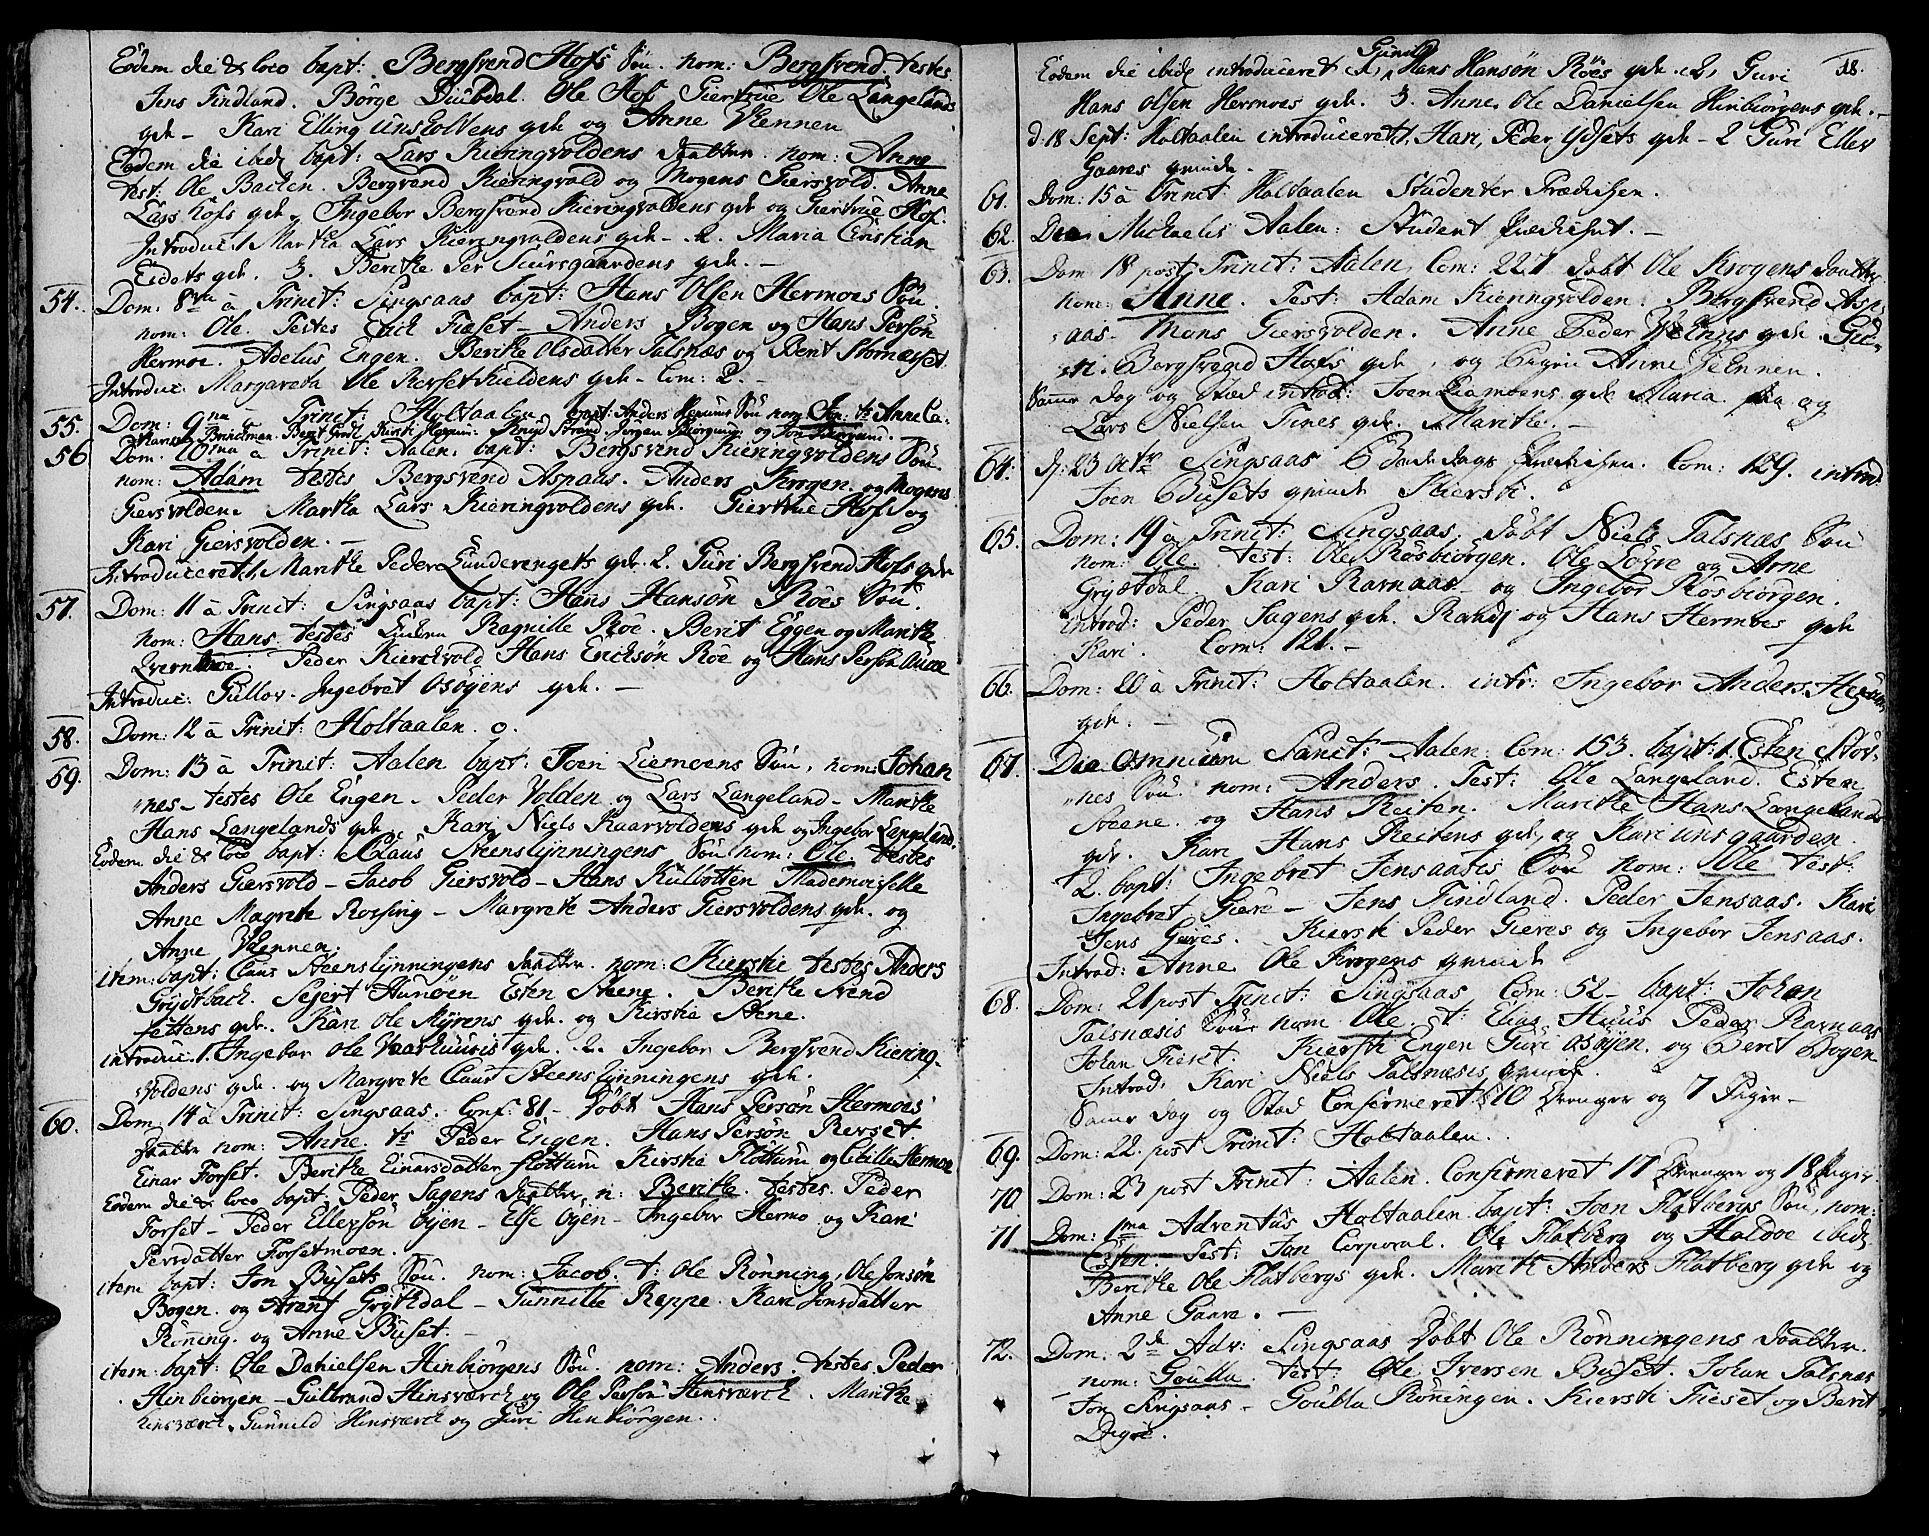 Eodem die & loco bapt: Bergsvend Hofs Sön. nom: Bergsvend. testes
Jens Findland. Börge Diubdal. Ole Hof Giertrue Ole Langelands
gdk – Kari Elling Unsholtens gdk og Anne Wennen
Eodem die ibid bapt: Lars Kieringvoldens daatter. nom: Anne
test: Ole Backen. Bergsvend Kieringvold og Mogens Giersvold. Anne
Lars Hofs gdk, Ingebor Bergsvend Kieringvoldens gdk og Giertrue Hof.
Introduc: 1. Martha Lars Kieringvoldens gdk – 2. Maria Cristian
Eidets gdk. 3. Berithe Per Siursgaardens gdk. –
54. Dom: 8va à Trinit: Singsaas bapt: Hans Olsen Hermoes Sön.
nom: Ole. Testes Erich Fieset – Anders Bogen og Hans Persön
Hermoe. Adelus Engen. Berithe Olsdatter Talsnæs og Berit Stornæsset
Introduc: Margareta Ole Rersetkieldens gdk – Com: 2. –
55. Dom: 9na – Trinit: Holtaalen bapt: Anders Heniums Sön nom: Jon: ts Anne Ca-
56 Dom: 10ma à Trinit: Aalen. bapt: Bergsvend Kieringvoldens Sön
nom: Adam testes Bergsvend Aspaas. Anders Krogen. og Mogens
Giersvolden. Martha Lars Kieringvoldens gdk. Giertrue Hof og
Kari Giersvolden. –
Introduceret 1. Marithe Peder Lunderengets gdk. 2. Guri Bergsvend Hofs gdk
57. Dom: 11 à Trinit: Singsaas bapt: Hans Hansön Röes Sön.
nom: Hans. testes Ragnille Roe. Berit Eggen og Marithe
Qvernmoe. Peder Kierchvold Hans Ericksön Röe og Hans Persön
Introduc: Gullov. Ingebret Osöyens gdk. –
58. Dom: 12 à Trinit: Holtaalen. o.
59. Dom: 13 à Trinit: Aalen bapt: Joen Liemoens Sön, nom: Johan
nes – testes Ole Engen – Peder Volden og Lars Langeland – Marithe
Hans Langelands gdk. Kari Niels Kaarvoldens gdk og Ingebor Langeland.
Eodem die & loco bapt: Claus Steenslynningens Sön nom: Ole. testes
Anders Giersvold – Jacob Giersvold – Hans Kulbotten Mademoiselle
Anne Magrete Rossing – Margrete Anders Giersvoldens gdk. og
Anne Wennen.
item: bapt: Claus Steenslynningens daatter. nom: Kierstie testes Anders
Grydtbach. Sejert Aunöen Esten Steene. Berithe Svend
settens gdk. Kari Ole Myrens gdk. og Kirstie Stene.
introduc: 1. Ingebor Ole Vaarhuusis gdk. 2. Ingebor Bergsvend Kiering-
voldens gdk. og Margrete Claus Steenslynningens gdk.
60. Dom 14 à Trinit: Singsaas. Conf: 81 – Döbt Hans Persön Hermoes
daatter nom: Anne. ts Peder Engen. Hans Persön Rerset.
Einar Forset. Berithe Einarsdatter flottum Kirstie Flöttum og Citille Hermoe
Eodem die & loco bapt: Peder Sagens daatter, n: Berithe. testes. Peder
Forset – Peder Ellevsön Öyen – Else Öyen – Ingebor Hermo og Kari
Persdatter Forsetmoen.
item bapt: Jon Busets Sön. nom: Jacob. t: Ole Rönning, Ole Jonsön
Bogen. og Arent Grötdal – Gunnille Reppe. Kari Jonsdatter
Röning. og Anne Buset. –
item: bapt: Ole Danielsen Hinbiörgens Sön. nom: Anders. testes Peder
Hinbiorgen – Gulbrand Hensværck og Ole Persön Hensværck. Marithe
hensværck. Gunnild Hinsværck og Guri Hinbiörgen.
18.
Eodem die ibid introduceret 1, Gunild Hans Hansön Röes gdk. 2, Guri
Hans Olsen Hermoes gdk. 3. Anne, Ole Danielsen Hinbiörgens gdk. –
d. 18 Sept: Holtaalen introduceret 1, Mari, Peder Ydsets gdk – 2 Guri Ellev
Gaares qvinde.
61. Dom: 15 à Trinit: Holtaalen Studenter Prædichen.
62. Die Michaelis Aalen: Student prædichet. –
63. Dom 18 post Trinit: Aalen, Com: 227 döbt Ole Krogens daatter
nom: Anne. Test: Adam Kieringvolden. Bergsvend Asp
aas. Mons Giersvolden. Anne Peder Wennes gdk. Gu-
ri. Bergsvend Hofs gdk, og Pigen Anne Wennen.
Samme dag og Stæd introd: Joen Liemoens gdk Maria. og
Lars Nielsen Tines gdk. Marithe. –
64. d: 23 octr Singsaas Bededags Prædichen. Com: 129. introd:
Joen Busets qvinde Kiersti.
65. Dom: 19 à Trinit: Singsaas. döbt Niels Talsnæs Sön
nom: Ole. test: Ole Rösbiörgen. Ole Lövre og Arne
Gryttdal Kari Ramaas og Ingebor Rösbiorgen.
introd: Peder Sagens gdk. Randj og Hans Hermoes gdk
Kari. Com: 121. –
66. Dom: 20 à Trinit: Holtaalen. intr: Ingebor Anders Heniums
gdk. –
67. Die Omnium Sanct: Aalen. Com: 153. bapt: 1. Esten Stör-
nes Sön. nom: Anders. Test: Ole Langeland. Esten
Steene. og Hans Reiten. Marithe Hans Langelands
gdk. Kari Hans Reitens gdk, og Kari unsgaarden.
2. bapt: Ingebret Jensaasis Sön nom: Ole test:
Ingebret Giere – Jens Findland. Peder Jensaas. Kari
Jens Gieres. Kiersti Peder Gieres og Ingebor Jensaas.
Introd: Anne Ole Krogens qvinde
68. Dom: 21 post Trinit: Singsaas Com: 52 – bapt: Johan
Talsnæsis Sön nom Ole. t: Elias Huus Peder Ramaas
Johan Fieset. Kiersti Engen Guri Osöyen. og Berit Bogen
Introd: Kari Niels Talsnæsis qvinde.
Samme dag og Stæd Confirmeret 10 Drenger og 7 Piger –
69. Dom: 22. post Trinit: Holtaalen.
70. Dom: 23 post Trinit: Aalen. Confirmeret 17 Drenger og 18 Piger
71 Dom: 1ma Adventus Holtaalen. bapt: Joen Flatbergs Sön, nom:
Esten. Test: Jon Corporal. Ole Flatberg og Haldoe ibid
Berithe Ole Flatbergs gdk. Marith Anders Flatberg gdk og
Anne Gaare. –
72. Dom: 2de Adv: Singsaas Döbt Ole Rönningens daatter.
nom: Goulla. test: Ole Iversen Buset. Johan Talsnæs
Jon Singsaas – Goulla Röningen. Kiersti Fieset og Berit
Digre.